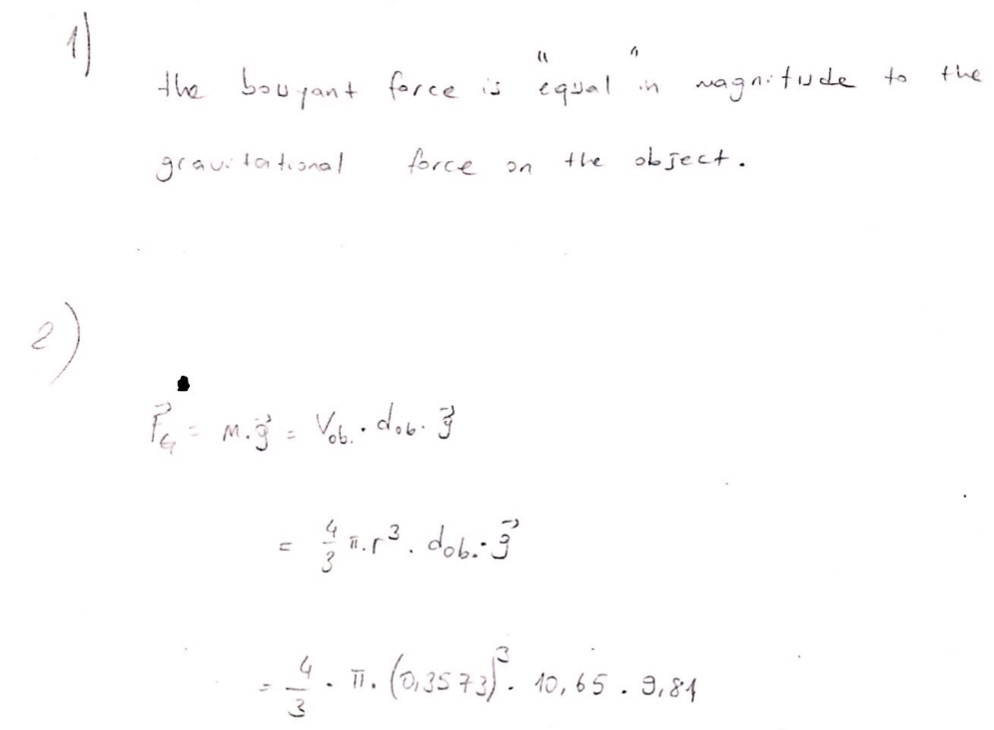 1)
the bouyant force is "equal" in magnitude to the
gravitational force on the object.
2)
F⃗G = m.g⃗ = Vob. . dob. g⃗
= 4/3 π.r³. dob. . g⃗
= 4/3 . π. (0,3573)³. 10,65 . 9,81